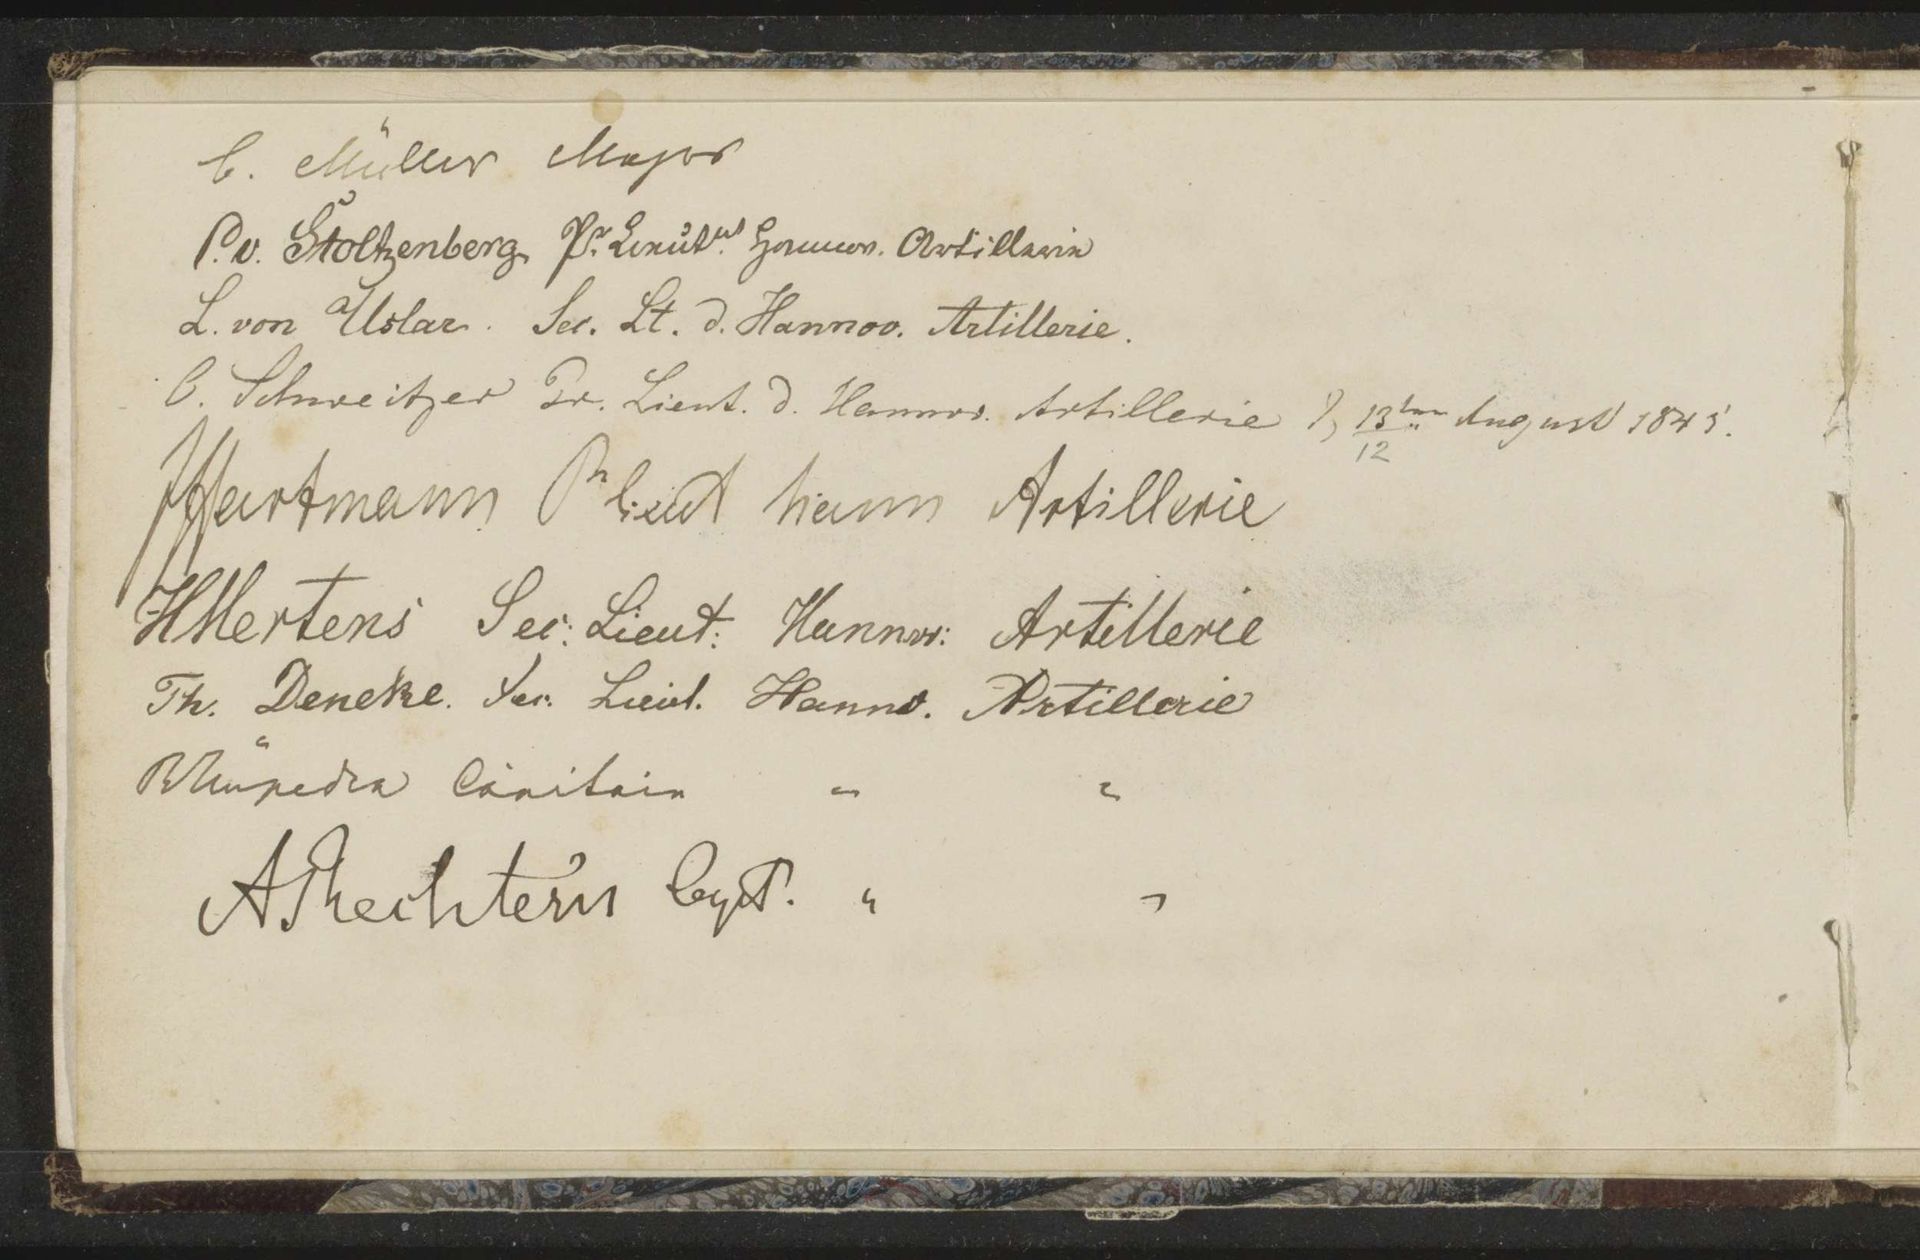 C. Müller Major
P. v. Stoltzenberg, Pr. Lieutnt. Hannov. Artillerie
L. von Uslar. Sec. Lt. d. Hannov. Artillerie.
C. Schweitzer Pr. Lieut. d. Hannov. Artillerie 13ten August 1845.
12
Hartmann Pr Lieut hann Artillerie
HMertens Sec: Lieut: Hannov: Artillerie
Th. Deneke. Sec. Lieut. Hannov. Artillerie
Capitain " "
A Rechtern Capt. " "